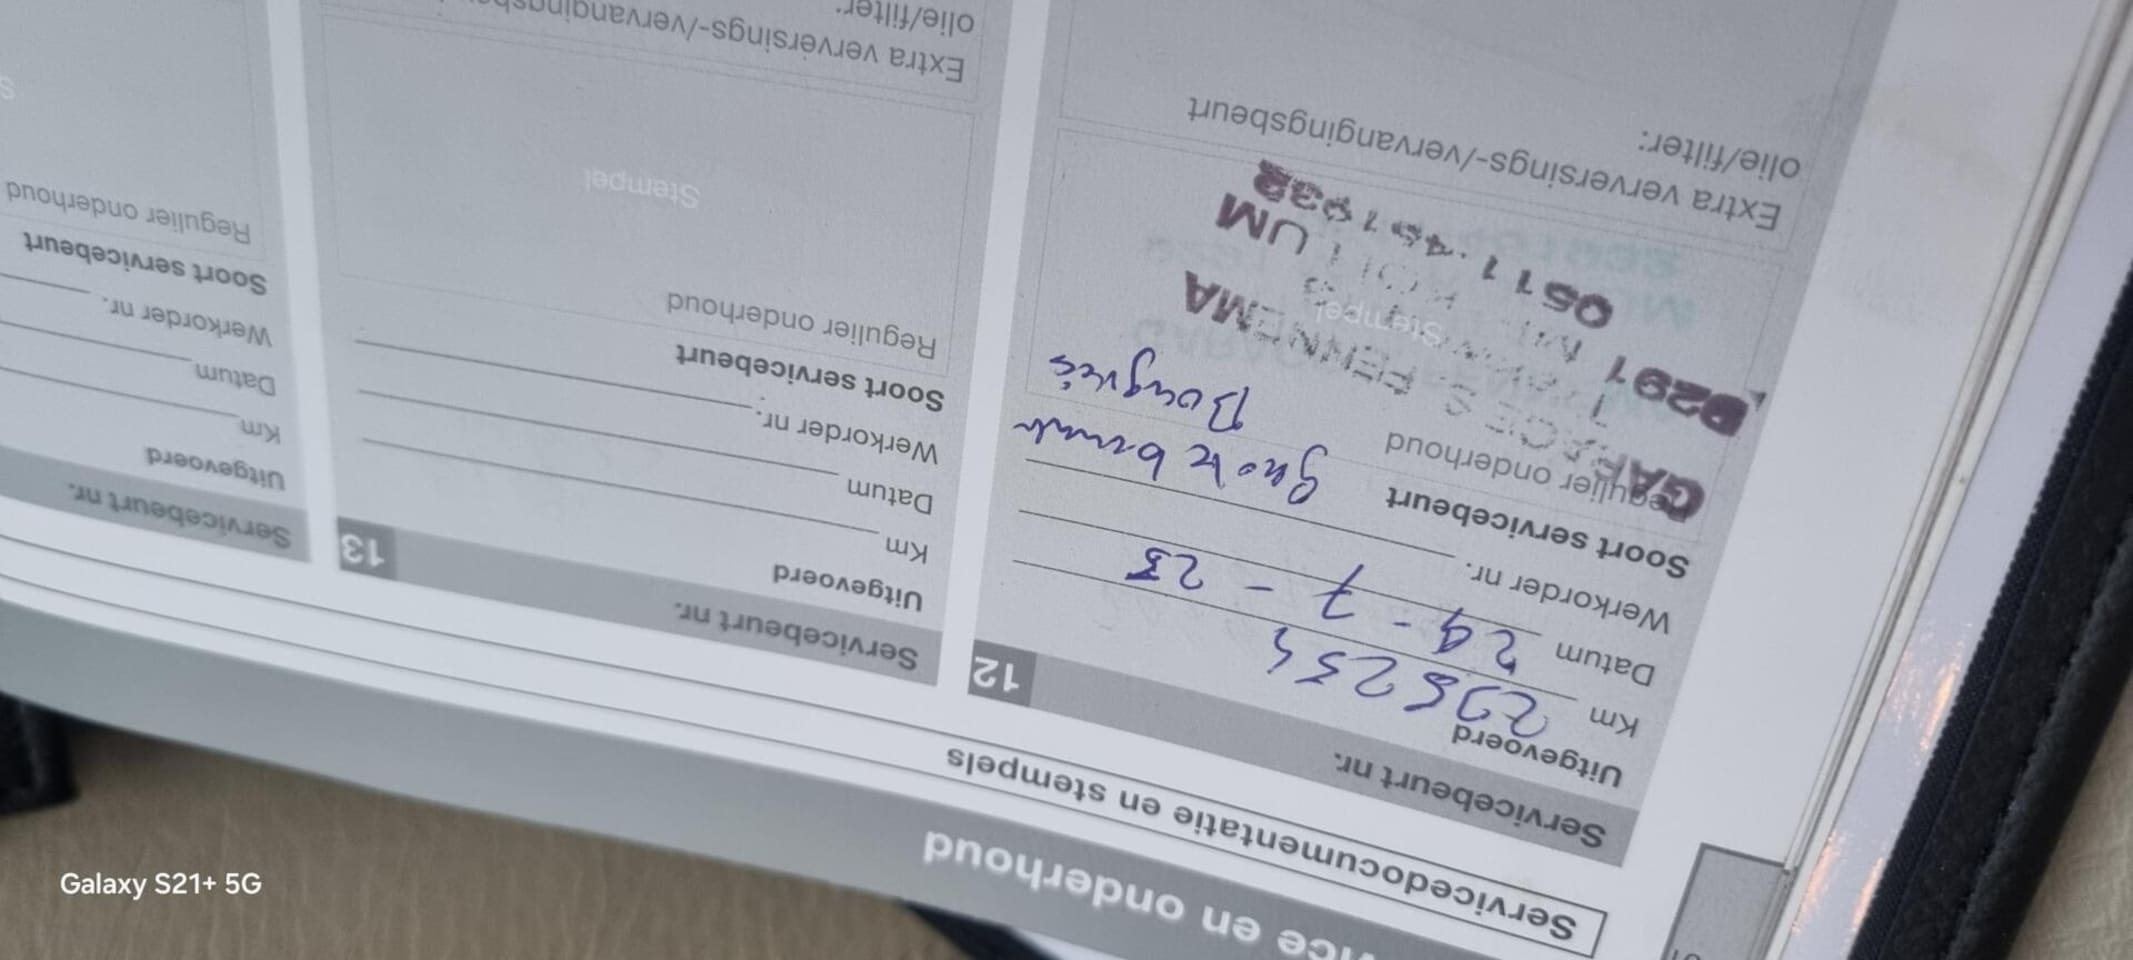 Service en onderhoud
Servicedocumentatie en stempels
Servicebeurt nr. 12
Uitgevoerd
Km
Datum 29-7-23
Werkorder nr.
Soort servicebeurt grote beurt
Regulier onderhoud Bougies
GARAGE S FENNEMA
9291
KOLLUM
0511
Stempel
Extra verversings-/vervangingsbeurt
olie/filter:
Servicebeurt nr. 13
Uitgevoerd
Km
Datum
Werkorder nr.
Soort servicebeurt
Regulier onderhoud
Stempel
Extra verversings-/vervangingsbe
olie/filter:
Servicebeurt nr.
Uitgevoerd
Km
Datum
Werkorder nr.
Soort servicebeurt
Regulier onderhoud
S
Galaxy S21+ 5G